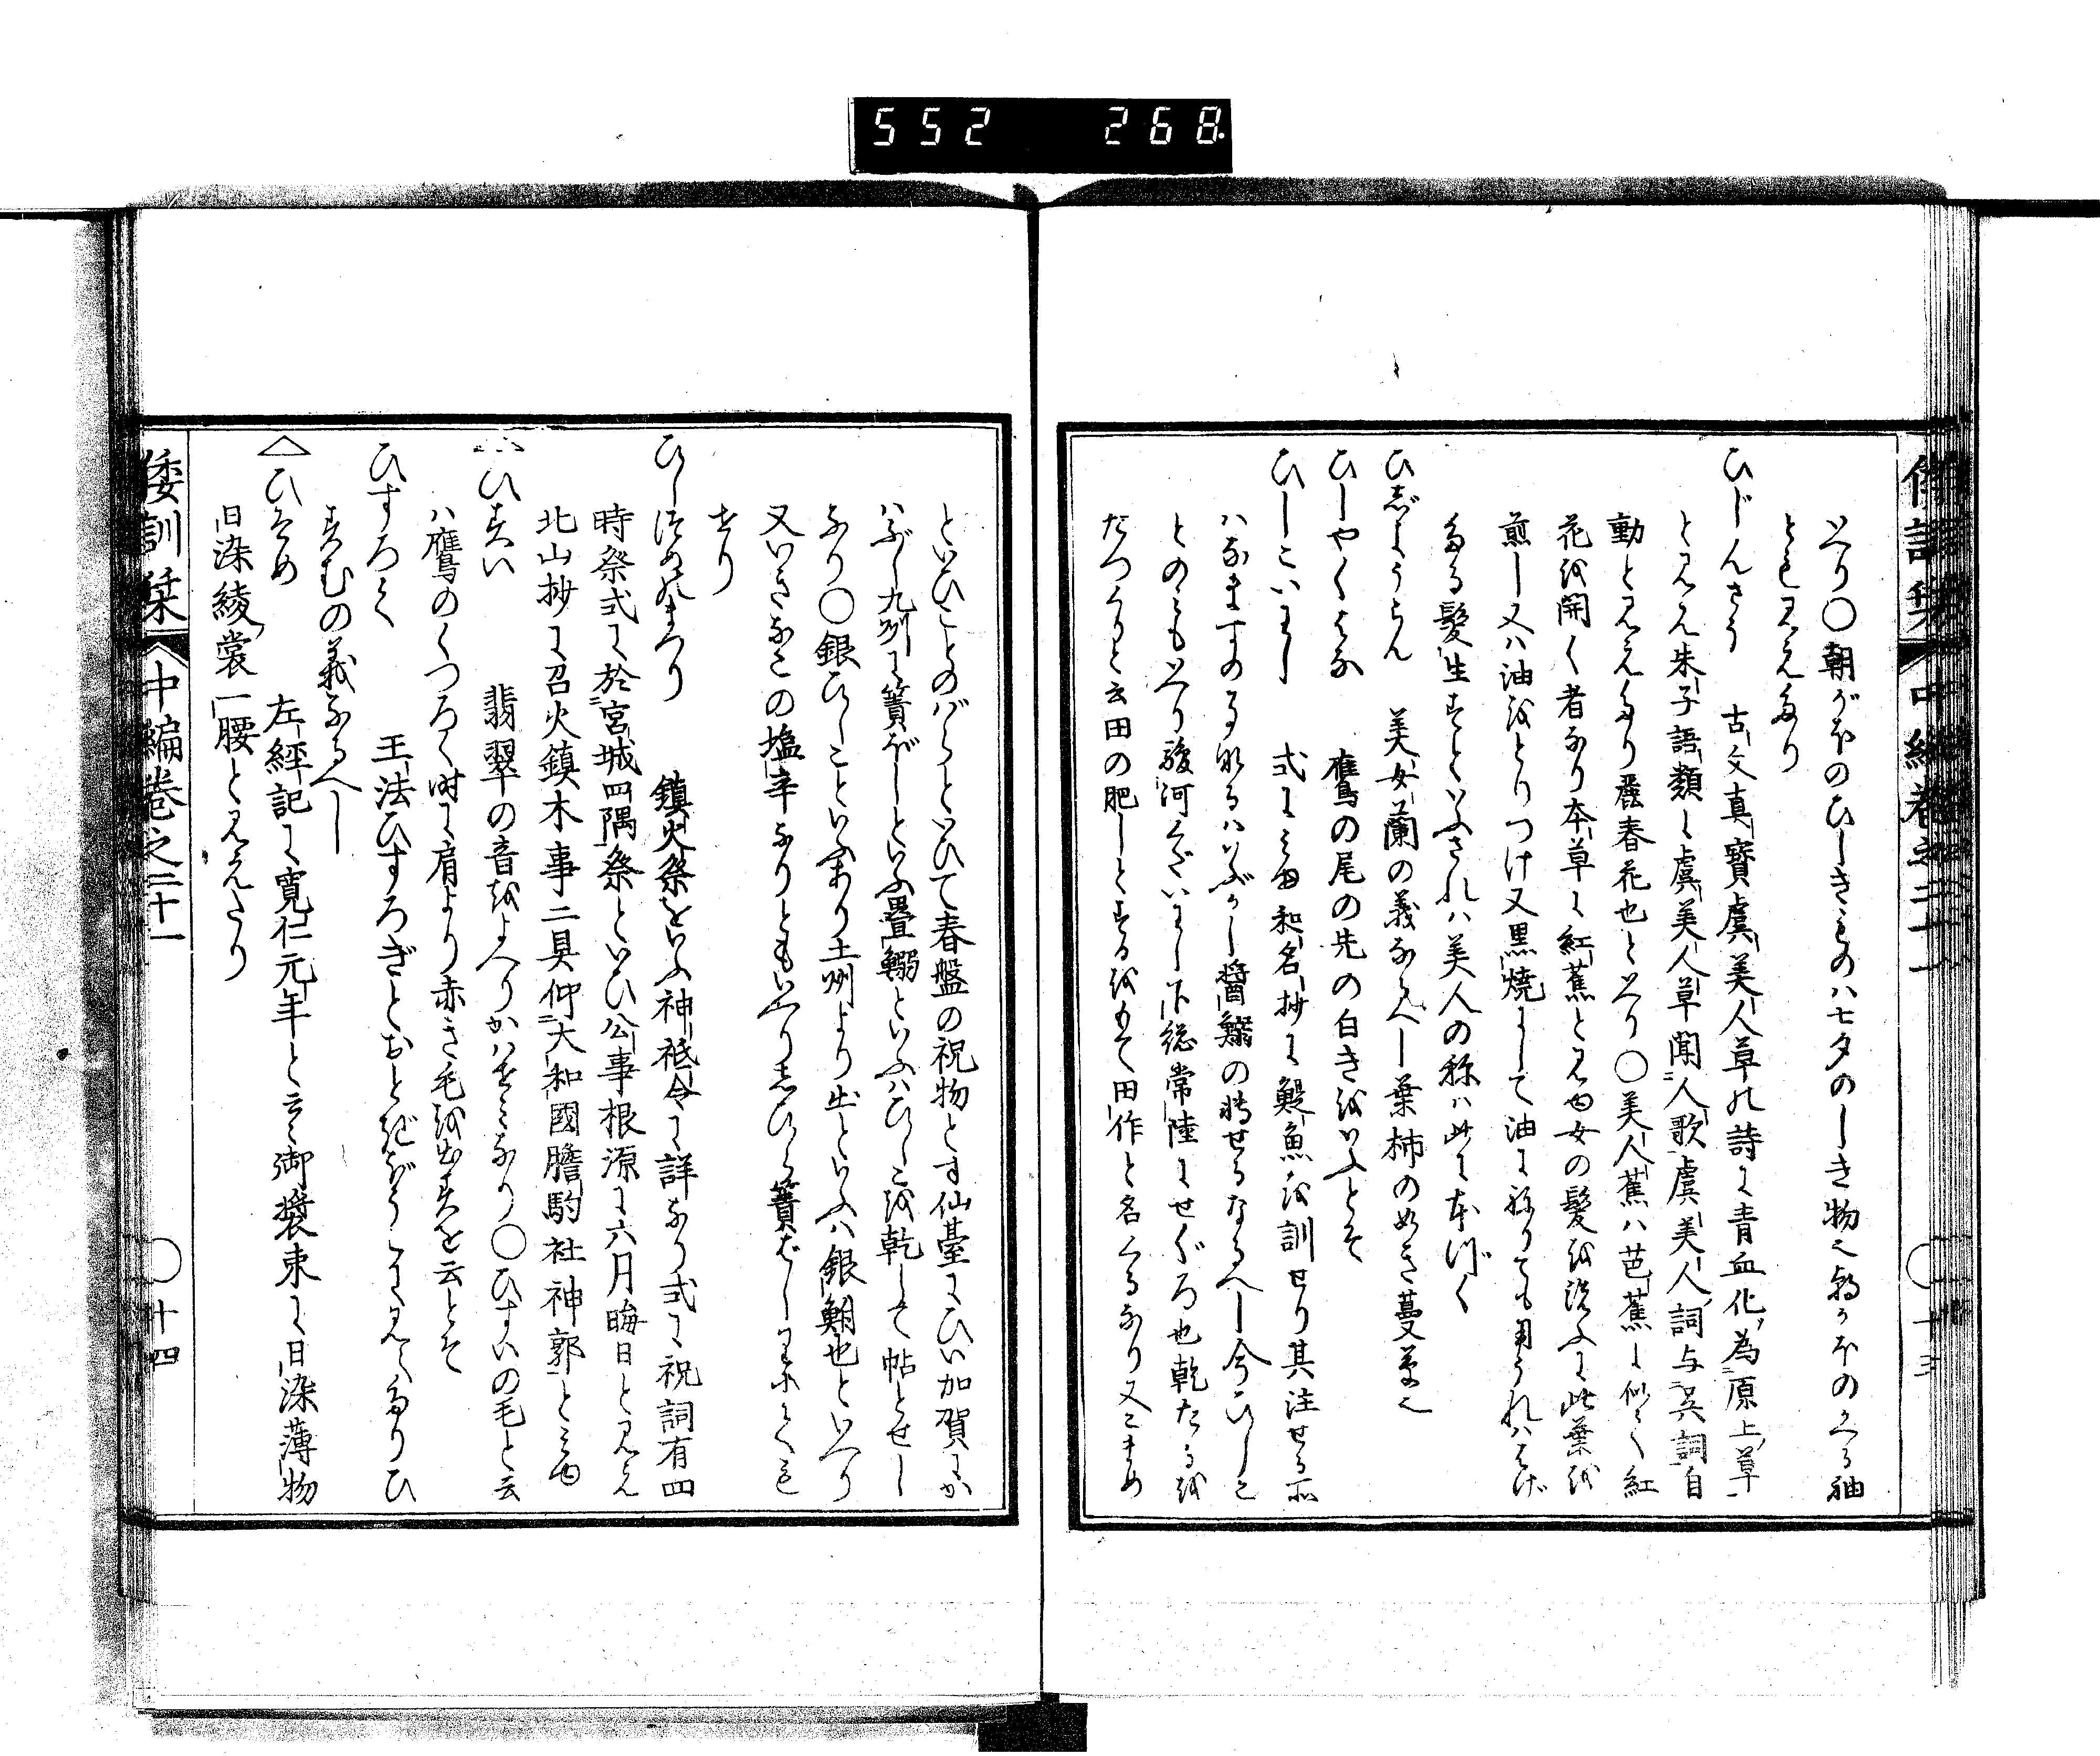 552 268
へり○朝がほのひしきものハ七夕のしき物也朝かほのへる袖
とも見えたり
ひじんさう 古文真寶虞美人草の詩に青血化為原上草
と見え朱子語類に虞美人草聞人歌虞美人詞与呉詞自
動と見えたり麗春花也といへり○美人蕉ハ芭蕉に似て紅
花を開く者なり本草に紅蕉と見ゆ女の髪を洗ふに此葉を
煎し又ハ油をとりつけ又黒焼にして油にねりても用うれハはげ
たる髪生すといふされハ美人の称ハ此に本づく
ひぢようらん 美女蘭の義なるへし葉柿のめき蔓草也
ひしやくはな 鷹の尾の先の白きをいふとそ
ひしこいわし 式にみゆ和名抄に鯷魚を訓せり其注せる所
ハなますの事なるハいぶかし醤鰯の転せるなるへし今ひしこ
とのミもいへり駿河くだいわし下総常陸にせぐろ也乾たるを
たつくりと云田の肥しとするをもて田作と名くるなり又こまめ
といひことのばらといひて春盤の祝物とす仙臺にひい加賀にか
ハぶし九州に簀ぼしといふ畳鰯といふハひしこを乾して帖とせし
なり○銀ひしこといふあり土州より出といふハ銀鯏也といへり
又いさなこの塩辛なりともいへりしひら簀ぼしわふくも
せり
ひしづめのまつり 鎮火祭をいふ神祇令に詳なり式に祝詞有四
時祭式に於宮城四隅祭といひ公事根源に六月晦日と見え
北山抄に召火鎮木事二具仰大和國膽駒社神郭とミゆ
△ひすい 翡翠の音をよへりかはせミなり○ひすいの毛と云
ハ鷹のくつろく時に肩より赤き毛を出すを云とそ
ひすろく 王法ひすろぎとおとばうしに見えたりひ
すむの義なるへし
△ひそめ 左経記に寛仁元年と云々御装束に日染薄物
日染綾裳一腰と見えたり
倭訓栞 中編巻之二十一 ○十四